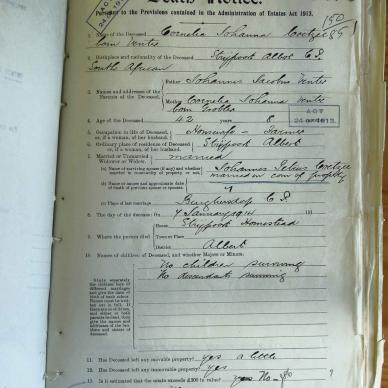 Death Notice.
Pursuant to the Provisions contained in the Administration of Estates Act 1913.
150
1. Name of the Deceased Cornelia Johanna Coetzee 85
born Venter
2. Birthplace and nationality of the Deceased Strypoort Albert C.P.
South African
3. Names and addresses of the Parents of the Deceased
Father Johannes Jacobus Venter
Mother Cornelia Johanna Venter
born Grobler
4. Age of the Deceased 42 years 8
5. Occupation in life of Deceased, or, if a woman, of her husband. Housewife - Farmer
6. Ordinary place of residence of Deceased or, if a woman, of her husband. Strypoort Albert
7. Married or Unmarried Widower or Widow married
(a) Name of surviving spouse (if any) and whether married in community of property or not. Johannes Coetzee
married in com of property
(b) Name or names and approximate date of death of previous spouse or spouses.
(c) Place of last marriage Burghersdorp C.P.
8. The day of the decease: On 7 January 1914 191
9. Where the person died
House Strypoort Homestead
Town or Place
District Albert
10. Names of children of Deceased, and whether Majors or Minors:
No children surviving
No descendants surviving
11. Has Deceased left any movable property? yes a little
12. Has Deceased left any immovable property? yes
13. Is it estimated that the estate exceeds £300 in value? No